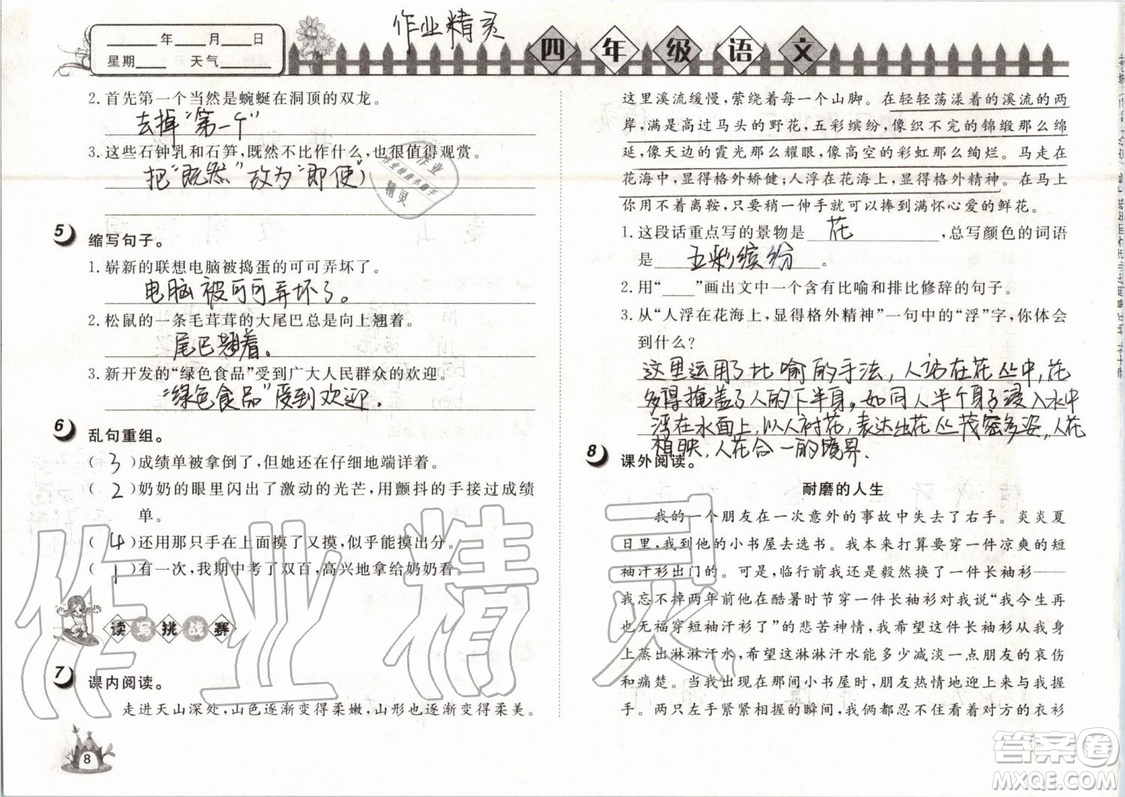 作业精灵
____年____月____日
星期____ 天气____
四年级语文
2.首先第一个当然是蜿蜒在洞顶的双龙。
去掉“第一个”
3.这些石钟乳和石笋，既然不比作什么，也很值得观赏。
把“既然”改为“即使”
5 缩写句子。
1.崭新的联想电脑被捣蛋的可可弄坏了。
电脑被可可弄坏了。
2.松鼠的一条毛茸茸的大尾巴总是向上翘着。
尾巴翘着。
3.新开发的“绿色食品”受到广大人民群众的欢迎。
“绿色食品”受到欢迎。
6 乱句重组。
( 3 )成绩单被拿倒了，但她还在仔细地端详着。
( 2 )奶奶的眼里闪出了激动的光芒，用颤抖的手接过成绩
单。
( 4 )还用那只手在上面摸了又摸，似乎能摸出分。
( 1 )有一次，我期中考了双百，高兴地拿给奶奶看。
读写挑战赛
7 课内阅读。
走进天山深处，山色逐渐变得柔嫩，山形也逐渐变得柔美。
8
这里溪流缓慢，萦绕着每一个山脚。在轻轻荡漾着的溪流的两
岸，满是高过马头的野花，五彩缤纷，像织不完的锦缎那么绵
延，像天边的霞光那么耀眼，像高空的彩虹那么绚烂。马走在
花海中，显得格外矫健；人浮在花海上，显得格外精神。在马上
你用不着离鞍，只要稍一伸手就可以捧到满怀心爱的鲜花。
1.这段话重点写的景物是 花 ，总写颜色的词语
是 五彩缤纷 。
2.用“____”画出文中一个含有比喻和排比修辞的句子。
3.从“人浮在花海上，显得格外精神”一句中的“浮”字，你体会
到什么？
这里运用了比喻的手法，人站在花丛中，花
多得掩盖了人的下半身，如同人半个身子浸入水中
浮在水面上，以人衬花，表达出花茂密多姿，人花
相映，人花合一的境界.
8 课外阅读。
耐磨的人生
我的一个朋友在一次意外的事故中失去了右手。炎炎夏
日里，我到他的小书屋去选书。我本来打算穿一件凉爽的短
袖汗衫出门的。可是，临行前我还是毅然换了一件长袖衫——
我忘不掉两年前他在酷暑时节穿一件长袖衫对我说“我今生
再也无福穿短袖汗衫了”的悲苦神情，我希望我的这件长袖衫
也能淋淋漓漓浸满汗水，希望这淋淋汗水能多少减淡他的哀
和痛楚。当我出现在那间小书屋时，朋友热情地迎过来与我握
手。两只左手紧紧相握的瞬间，我俩几乎同时看着对方的衣衫
作业精灵
答案圈
MXQE.COM